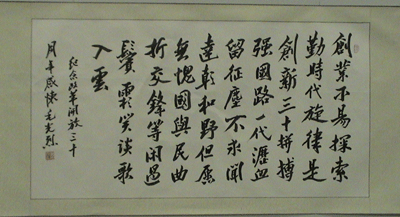 創業不易探索
勤時代旋律是
創新三十拼搏
强國路一代瀝血
留征塵不求聞
達彰和野但願
無愧國與民曲
折交鋒等闲過
鬢霜笑談歌
入雲
纪念改革開放三十
周年感懷